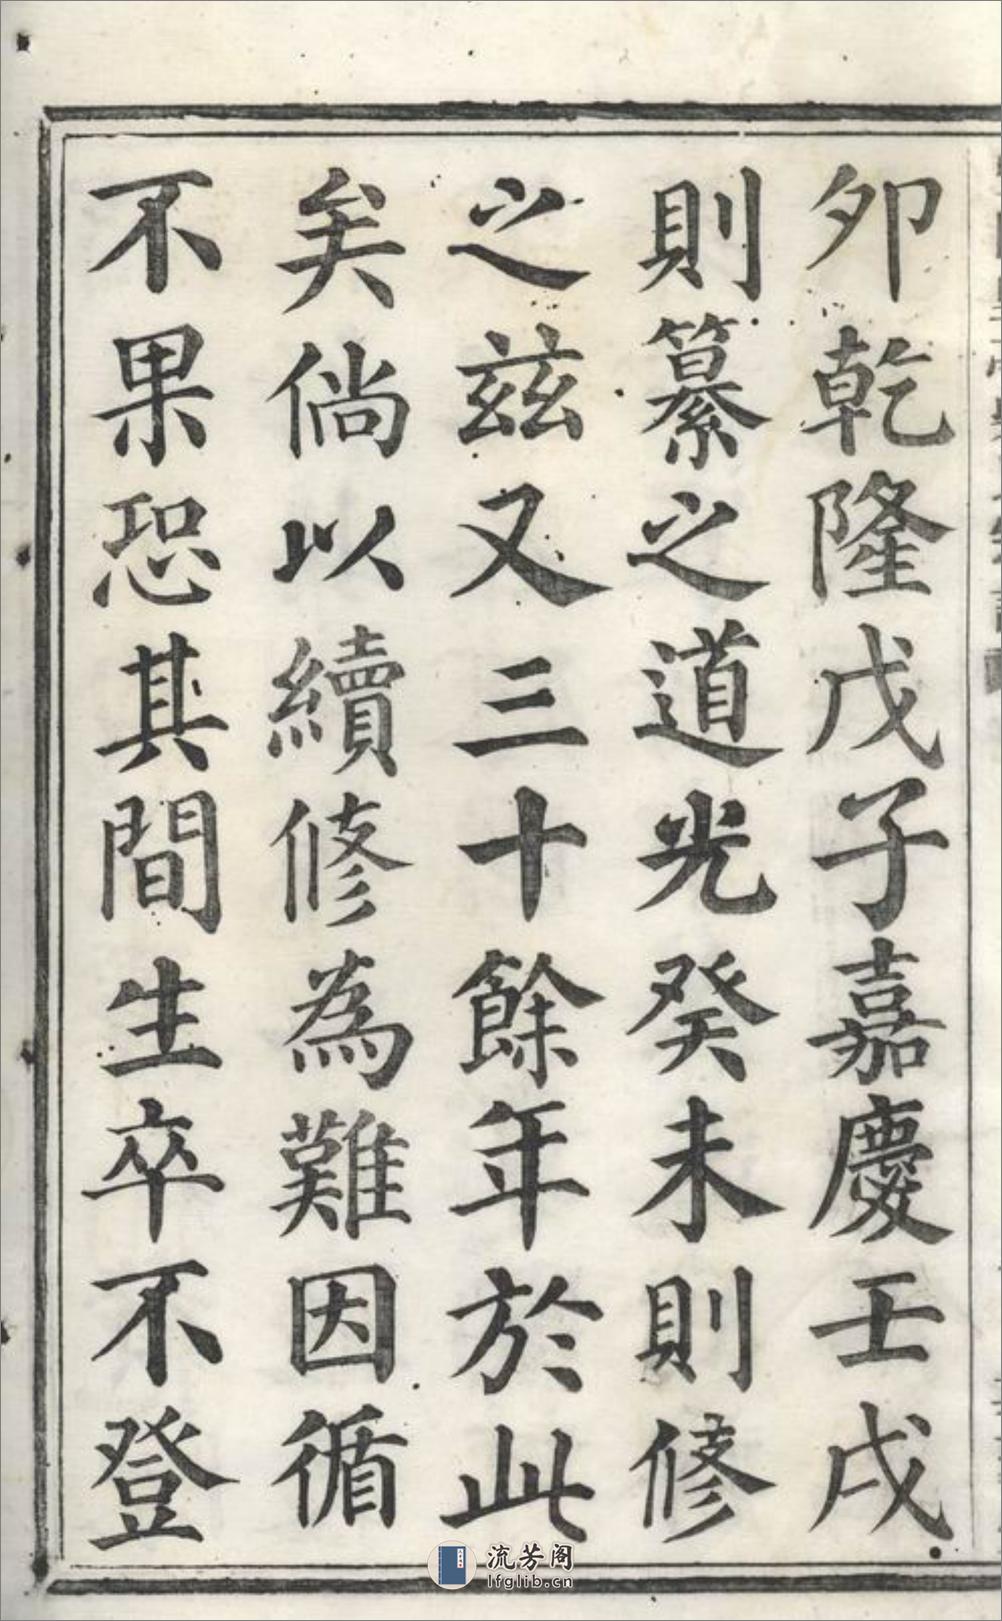 夘乾隆戊子嘉慶壬戌
則纂之道光癸未則修
之茲又三十餘年於此
矣倘以續修為難因循
不果恐其間生卒不登
流芳阁
lfglib.cn